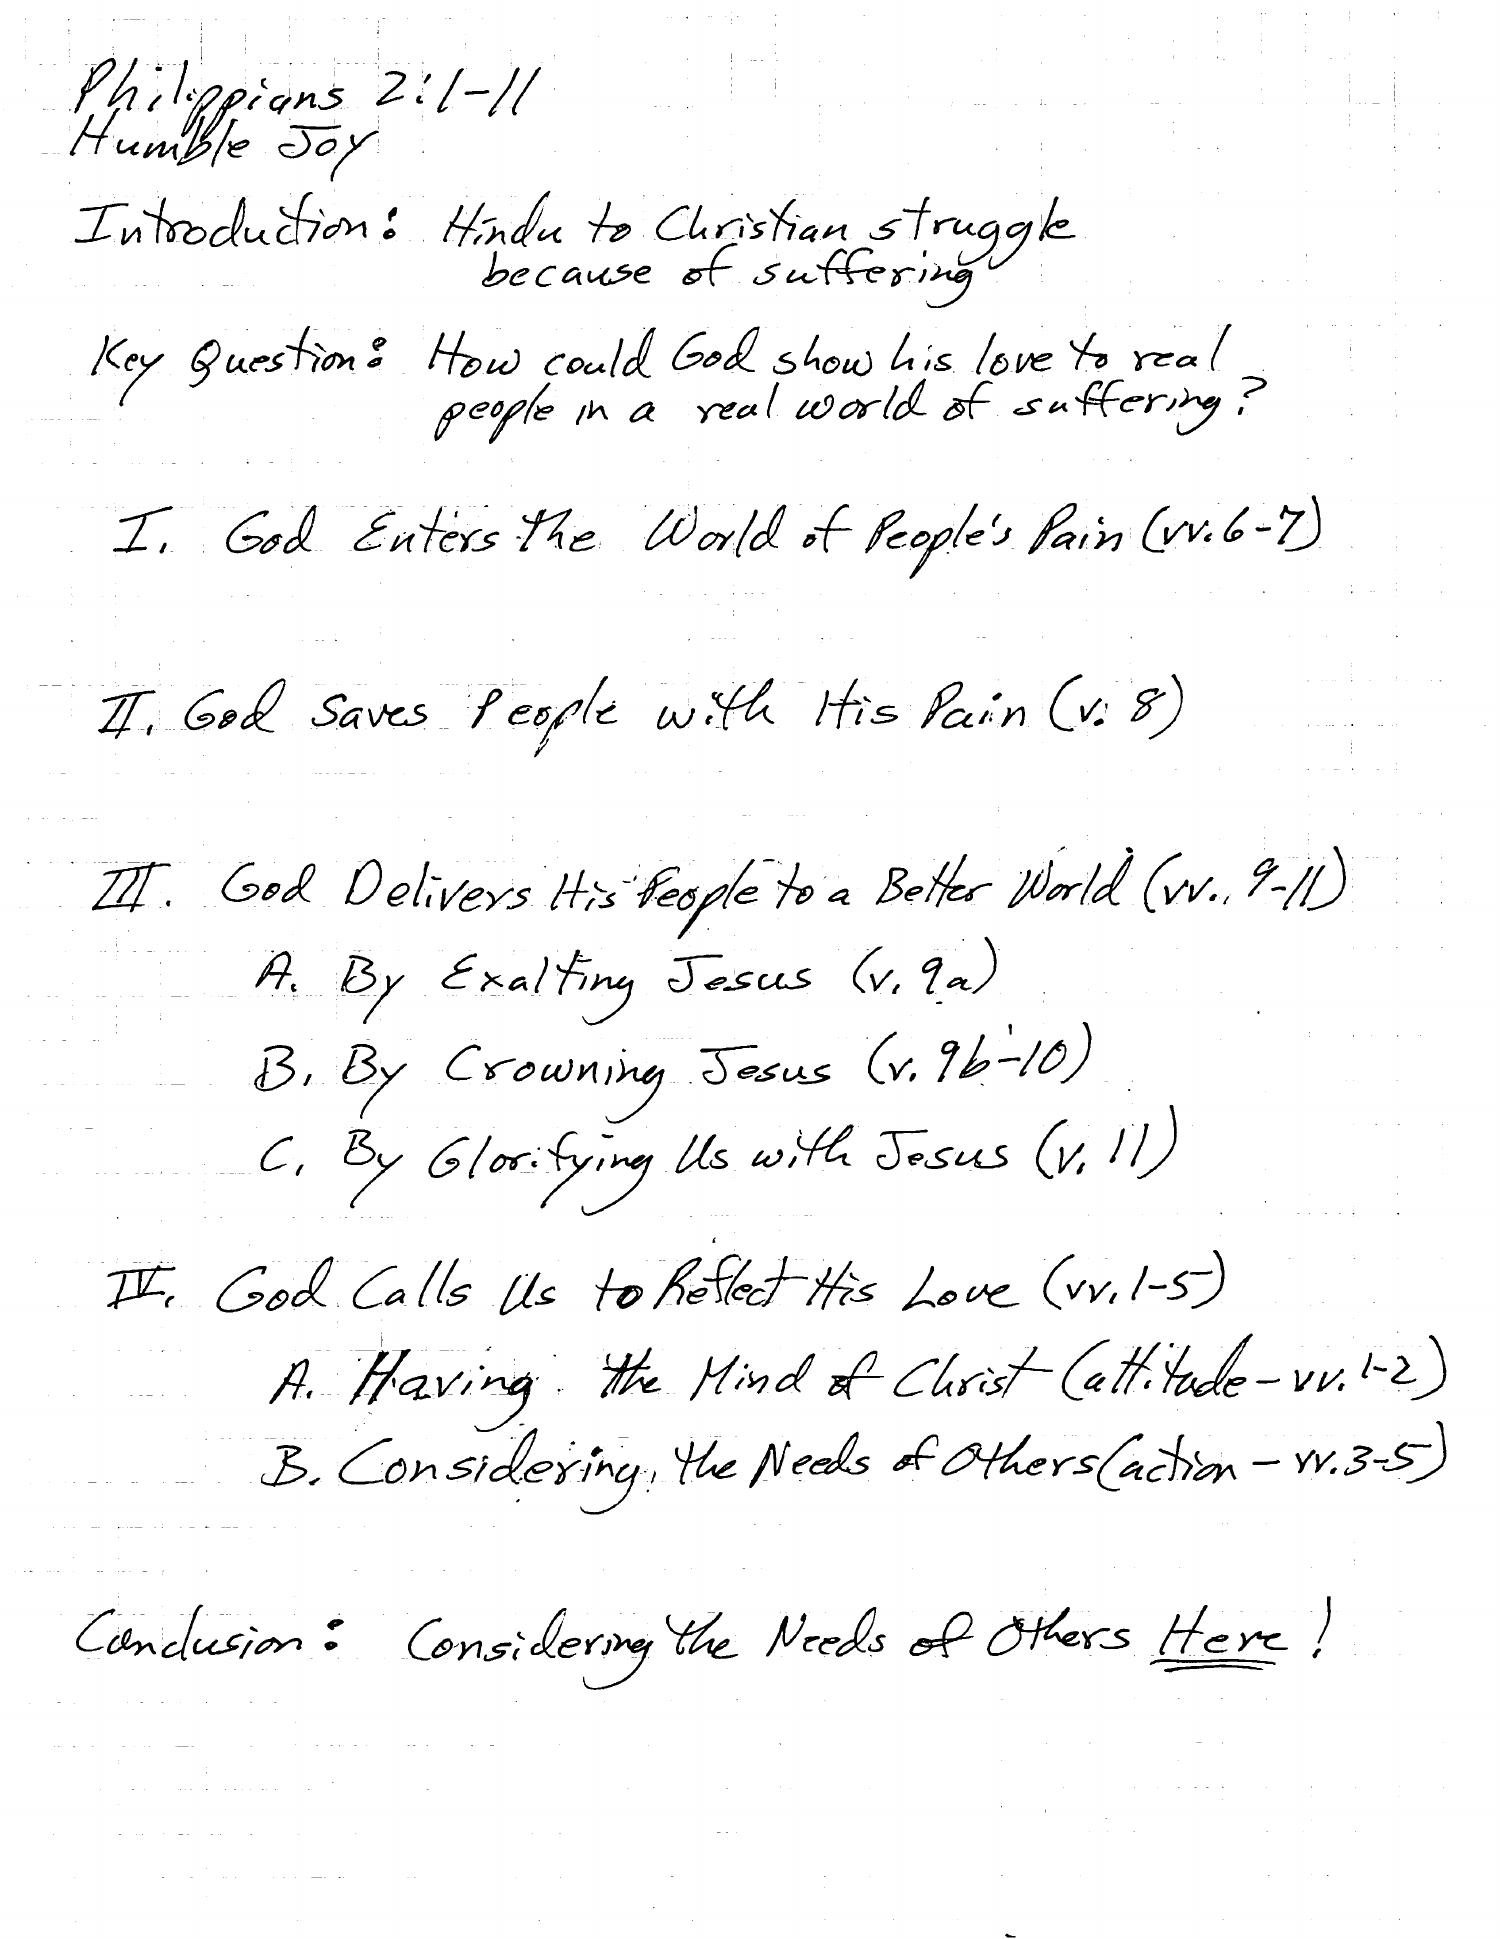 Philippians 2:1-11
Humble Joy
Introduction: Hindu to Christian struggle
because of suffering
Key Question: How could God show his love to real
people in a real world of suffering?
I. God Enters the World of People's Pain (vv. 6-7)
II. God Saves People with His Pain (v. 8)
III. God Delivers His People to a Better World (vv. 9-11)
A. By Exalting Jesus (v. 9a)
B. By Crowning Jesus (v. 9b-10)
C. By Glorifying Us with Jesus (v. 11)
IV. God Calls Us to Reflect His Love (vv. 1-5)
A. Having the Mind of Christ (attitude - vv. 1-2)
B. Considering the Needs of Others (action - vv. 3-5)
Conclusion: Considering the Needs of Others Here!